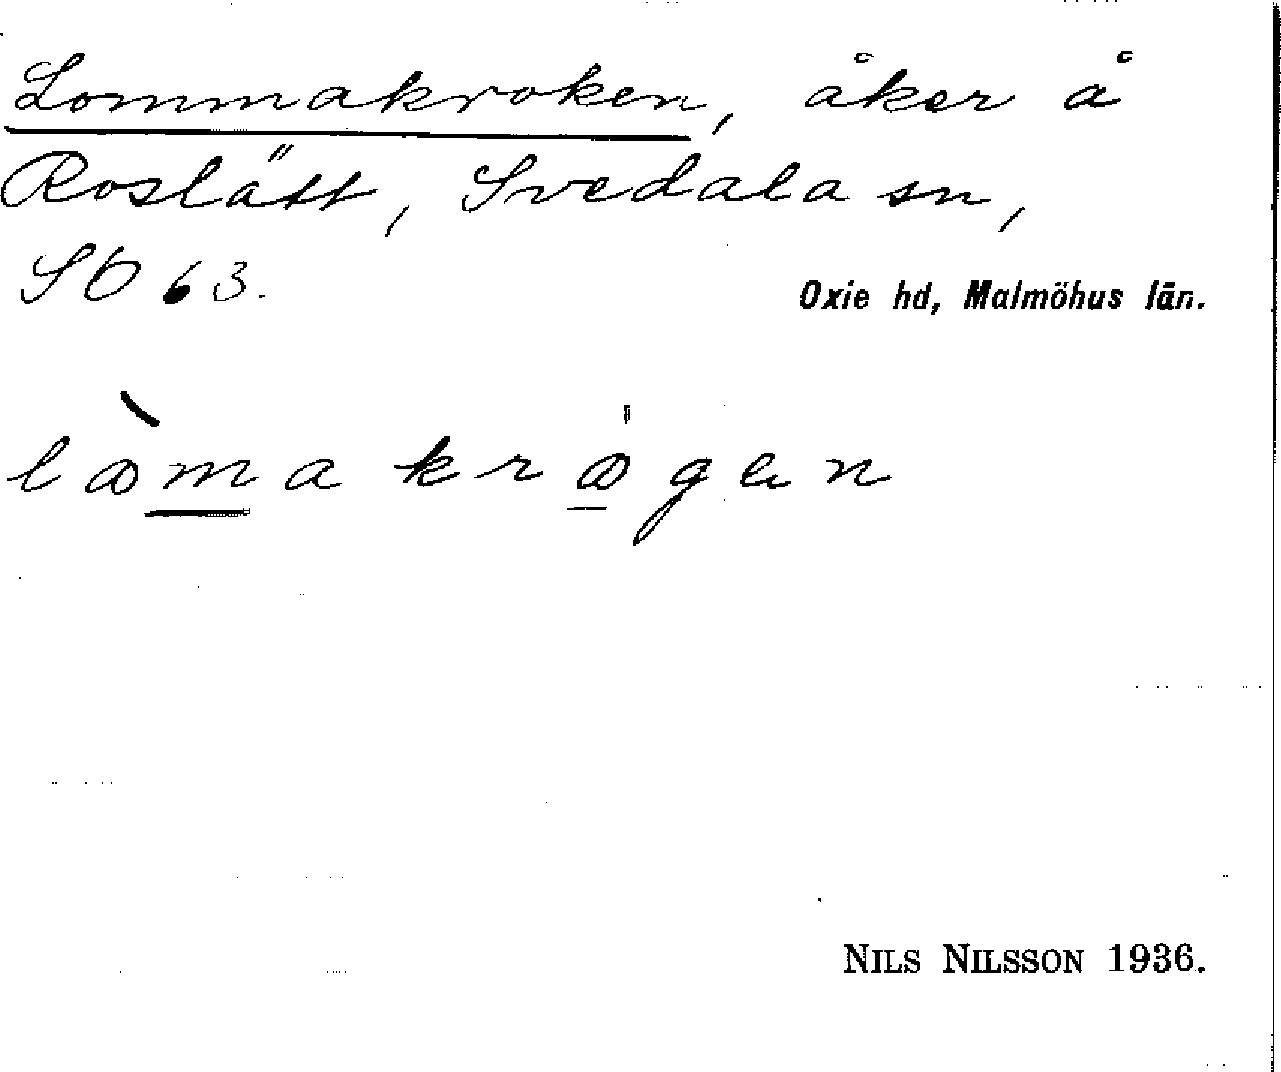 Lommakroken, åker å
Roslätt, Svedala sn,
SO 63.
Oxie hd, Malmöhus län.
NILS NILSSON 1936.